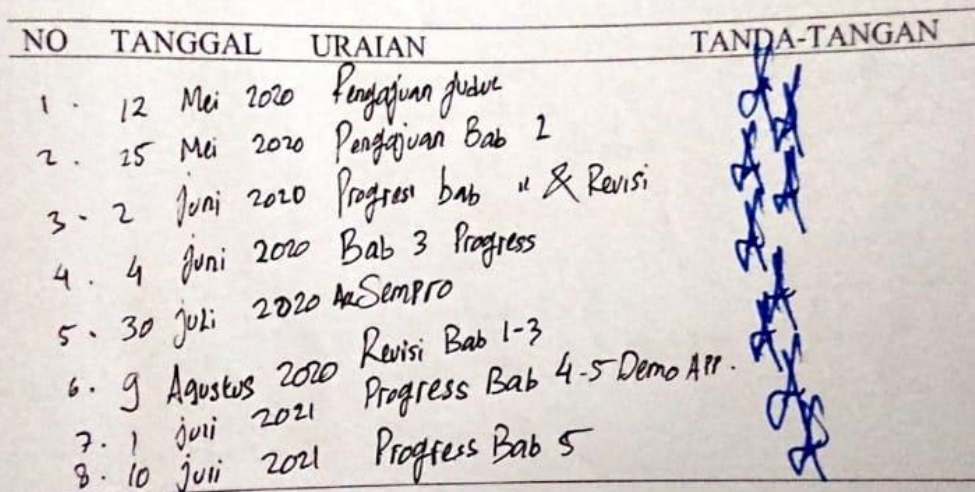 NO TANGGAL URAIAN TANDA-TANGAN
1. 12 Mei 2020 Pengajuan Judul
2. 25 Mei 2020 Pengajuan Bab 2
3. 2 Juni 2020 Progress bab " & Revisi
4. 4 Juni 2020 Bab 3 Progress
5. 30 Juli 2020 Sempro
6. 9 Agustus 2020 Revisi Bab 1-3
7. 1 Juli 2021 Progress Bab 4-5 Demo App.
8. 10 Juli 2021 Progress Bab 5